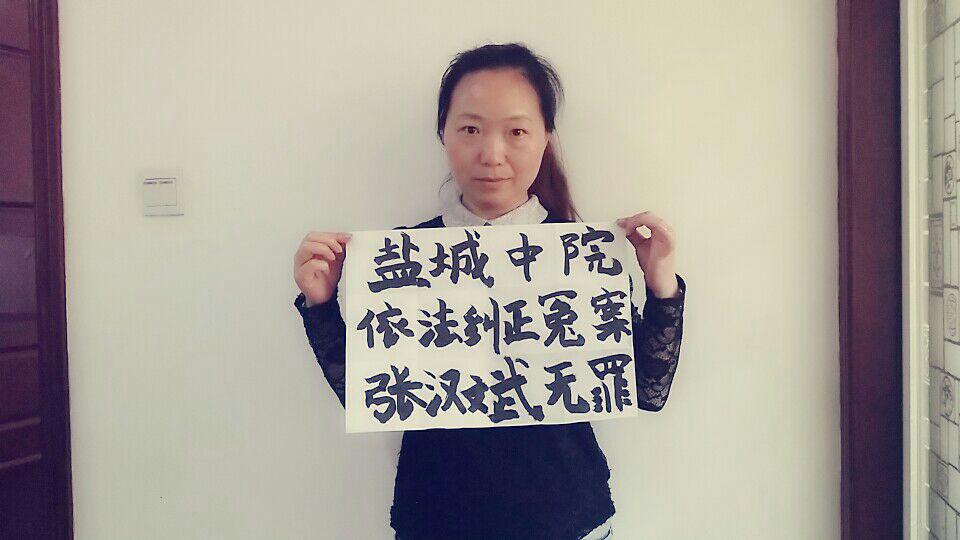 盐城中院
依法纠正冤案
张汉斌无罪